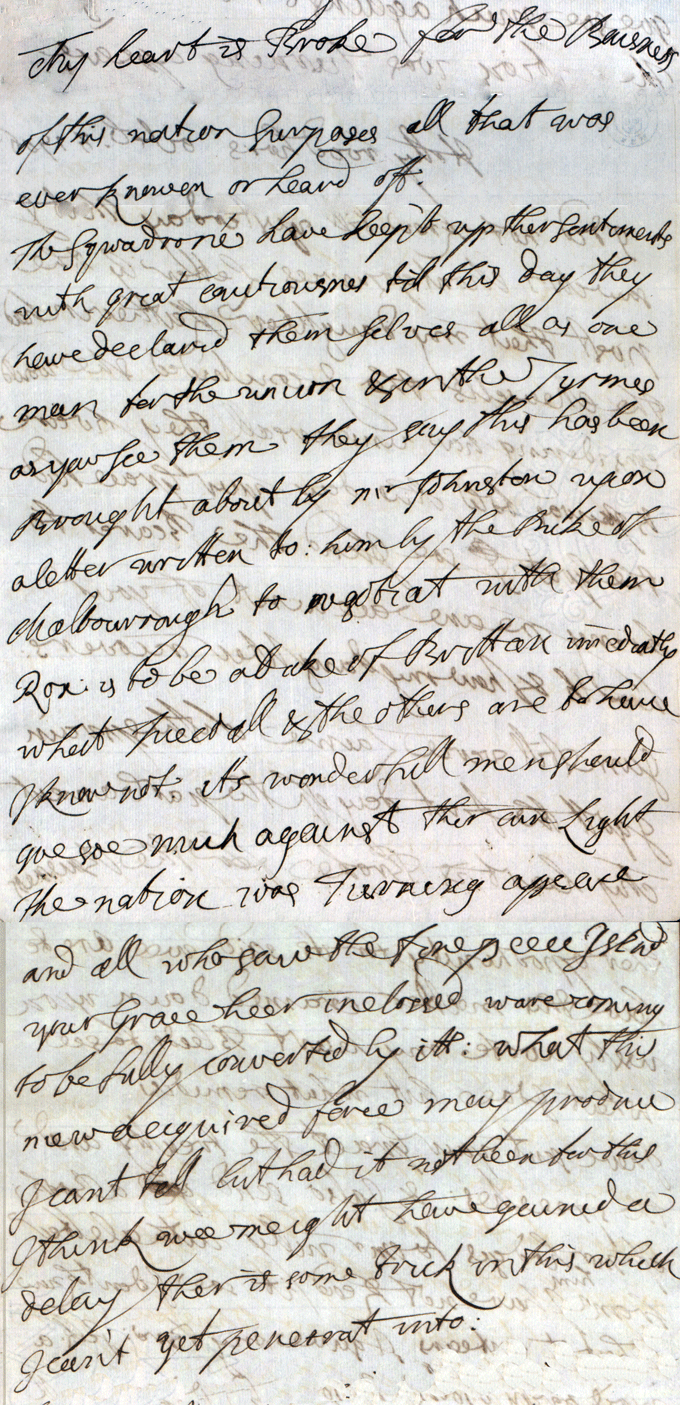 My heart is Broke for the Baisness
of this nation Surpases all that was
ever knowen or heard off.
The Squadrone have keept up ther sentiments
with great cautiousnes till this day they
have declarid them selves all as one
man for the union & in the Tyrmes
as you see them they say this has been
Brought about by mr Johnston upon
a letter written to: him by the Duke of
Malbourrough to negotiat with them
Rox: is to be a Duke of Brittan imediatly
what Tweddall & the others are to have
I know not it's wonderfull men should
goe soe much against ther own Light
the nation was Turning apeace
and all who saw the fine peece I send
your Grace heer inclossed ware coming
to be fully converted by itt: what this
new acquired force may produce
I cant tell but had it not been for this
I think wee meight have gained a
delay ther is some trick in this which
I can't yet penetrat into: